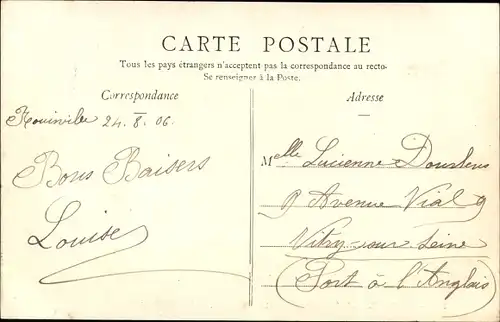 CARTE POSTALE
Tous les pays étrangers n'acceptent pas la correspondance au recto-
Se renseigner à la Poste.
Correspondance
24. 8. 06.
Bons Baisers
Louise
Adresse
Melle Lucienne
9 Avenue Vial 9
Vitry-sur-Seine
(Port à l'Anglais)